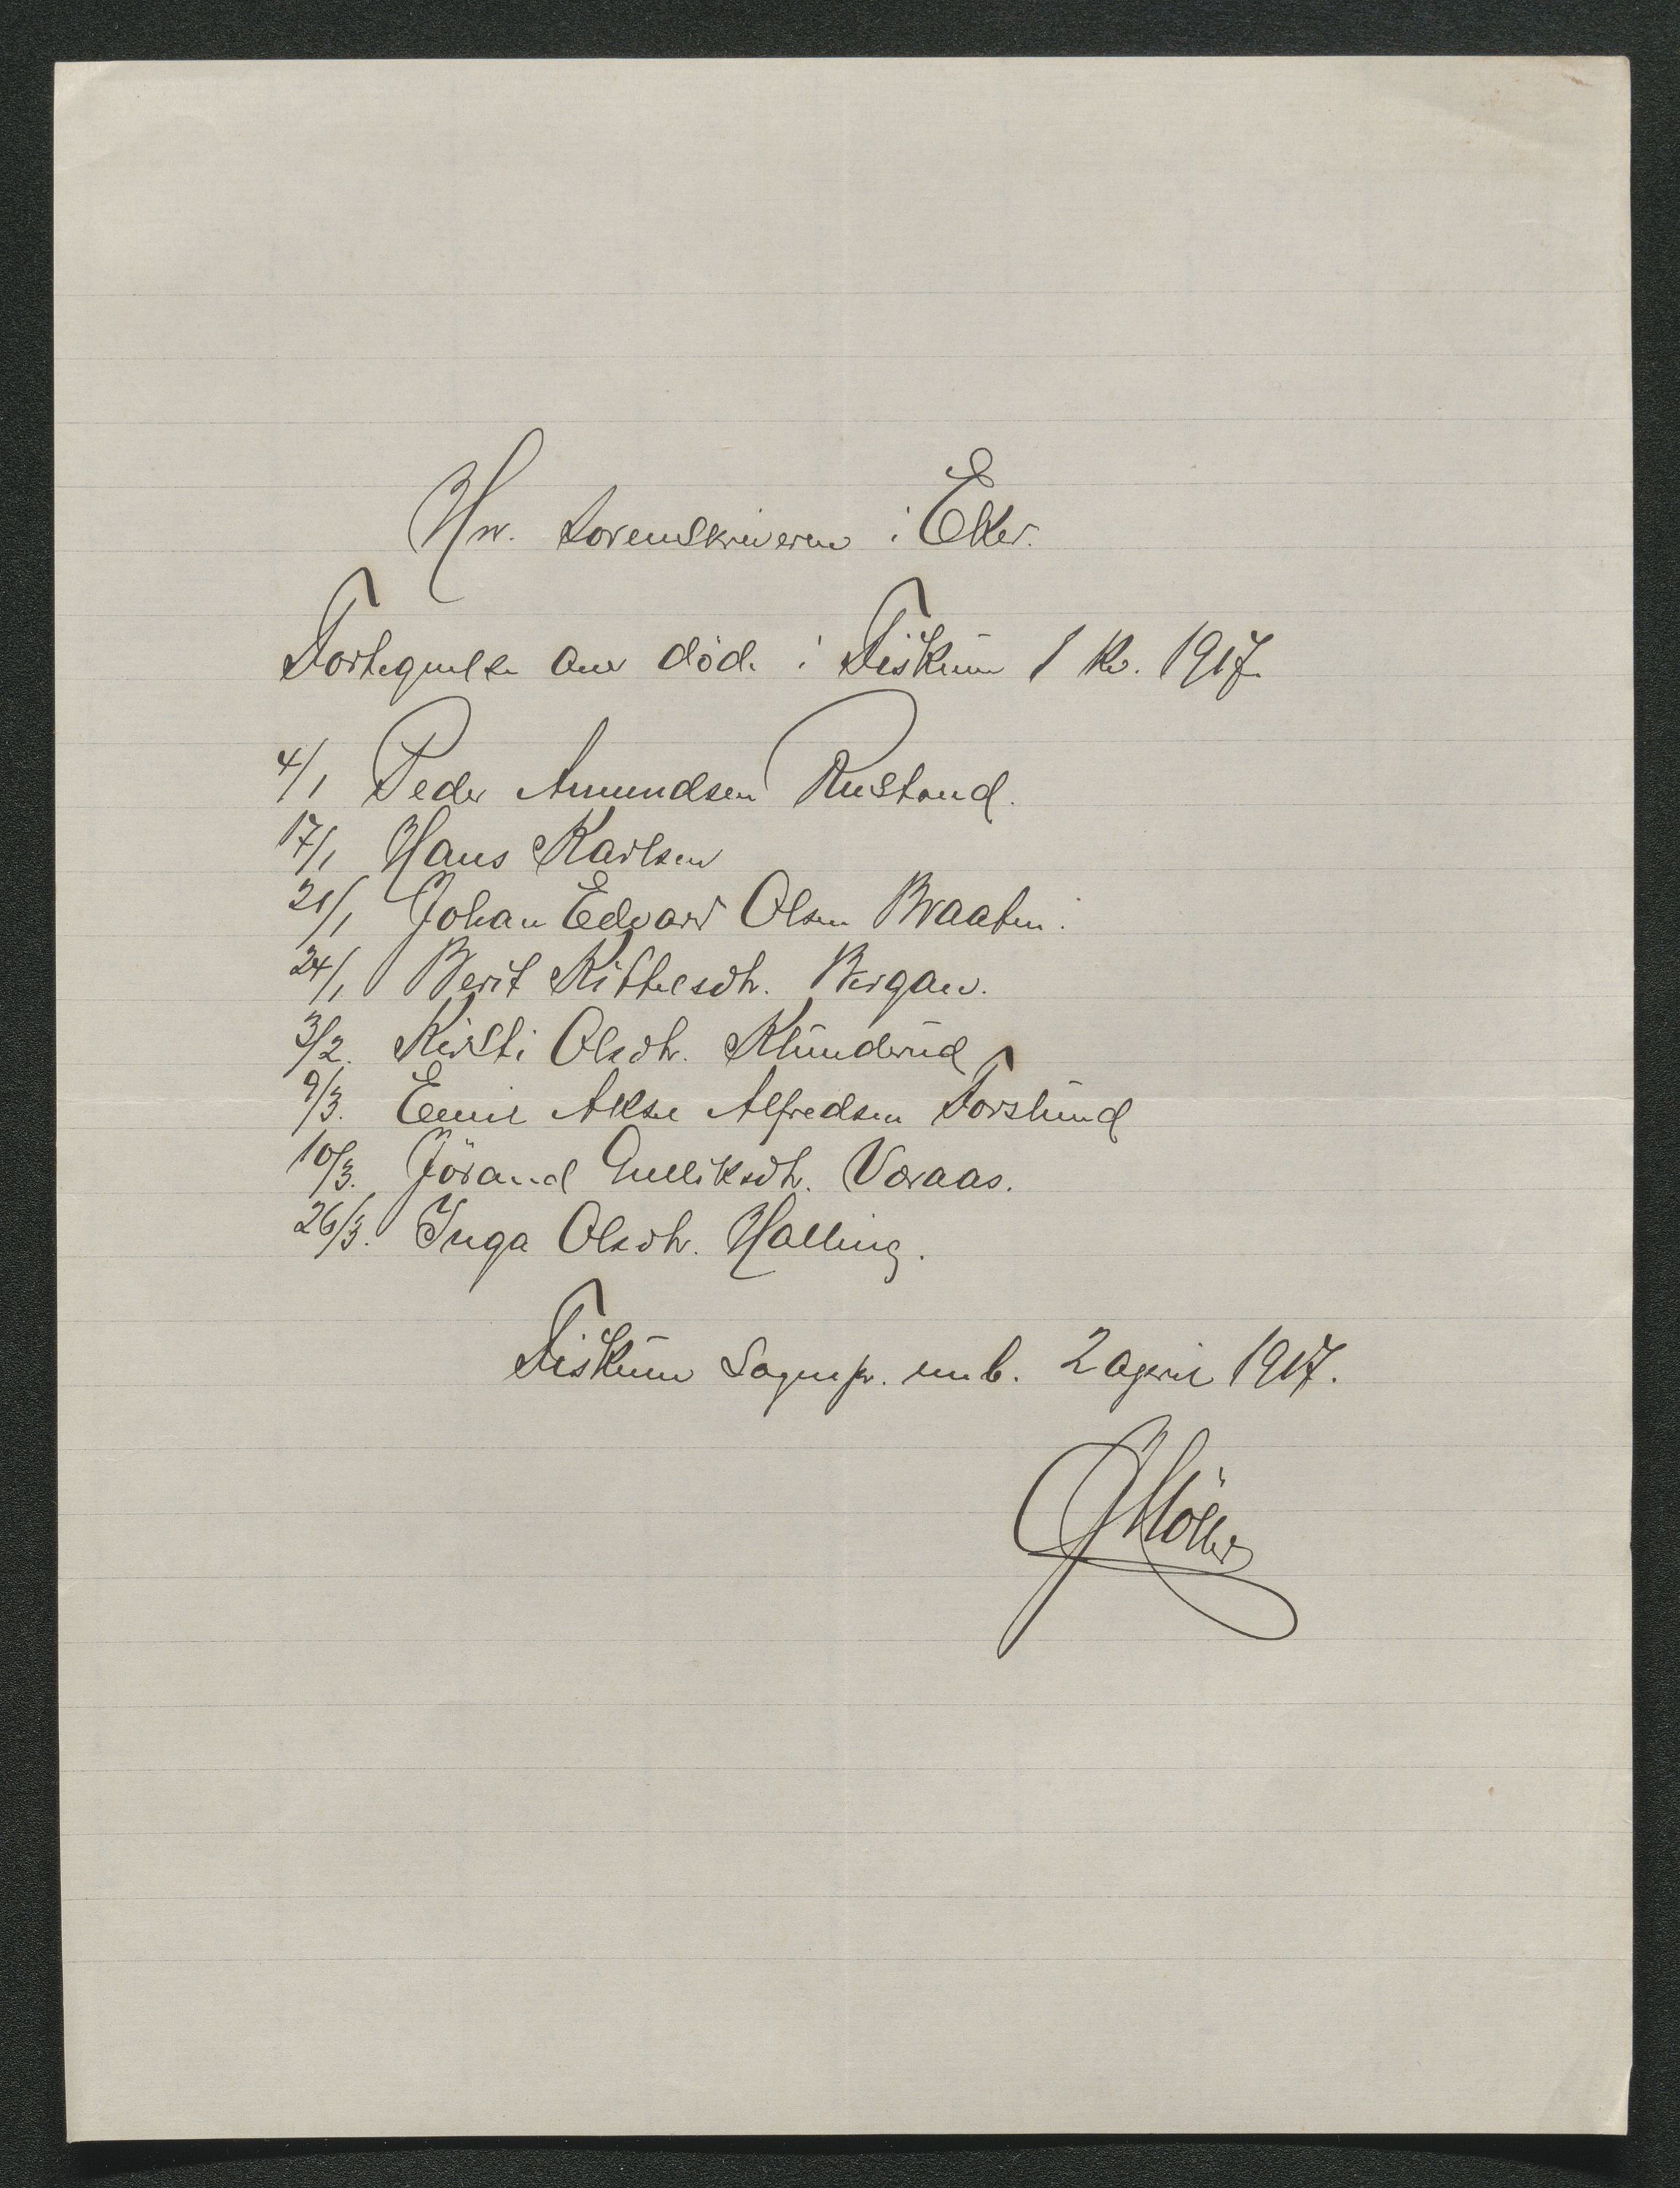 Hr. Sorenskriveren i Eker.
Fortegnelse over døde i Fiskum 1 kv. 1917.
4/1 Peder Amundsen Rustand.
17/1 Hans Karlsen
21/1 Johan Edvard Olsen Braaten.
24/1 Berit Kittelsdtr. Bergan.
3/2. Kirsti Olsdtr. Klunderud
9/3. Emil Aksel Alfredsen Forslund
10/3. Jörand Gulliksdtr. Varaas.
26/3. Inga Olsdtr. Halling.
Fiskum Sognepr. emb. 2 april 1917.
Möller